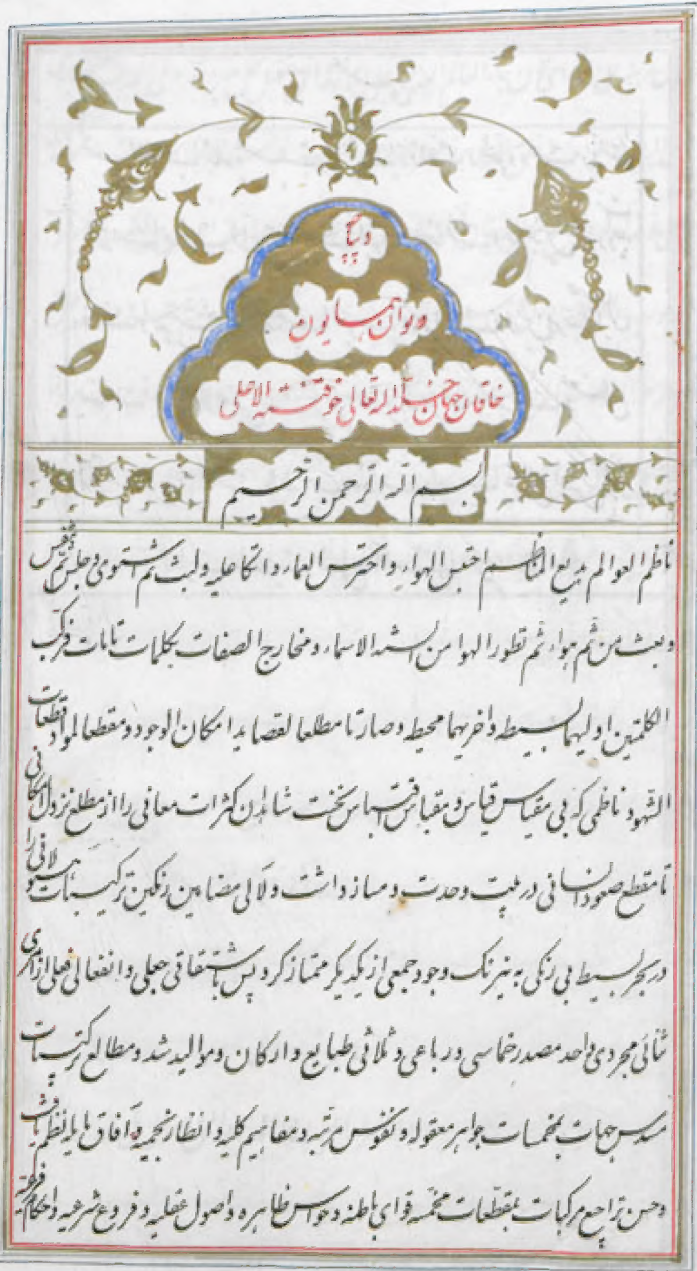 دیباچه
دیوان همایون
خاقان جهان خلد الله تعالی خوقته الاعلی
بسم الله الرحمن الرحیم
ناظم العوالم بدیع المناظم احتبس الهواء واحترس العماء و اتکا علیه ولبث ثم استوی و جلس ثم تنفس
وبعث من ثم هواء ثم تطور الهوا من الاسماء و مخارج الصفات بکلمات تامات فرکب
الکلمتین اولیهما بسیطه و اخریهما محیطه وصارتا مطلعا لقصاید امکان الوجود و مقطعا لمواد قطعات
الشهود ناظمی که بی مقیاس قیاس و مقباس اقتباس نخست کثرات معانی را از مطلع نزول امکانی
تا مقطع صعود انسانی در بیت وحدت و مساز داشت و لآلی مضامین رنکین ترکیبات هیولانی را
در بحر بسیط بی رنکی به نیرنک وجود جمعی از یکدیکر ممتاز کرد پس باشتقاقی جعلی و انفعالی فعلی از امری
ثنائی مجردی واحد مصدر خماسی و رباعی و ثلاثی طبایع و ارکان و موالید شد و مطالع ترکیبات
مسدس جهات بمخمسات جواهر معقوله و نفوس مرتبه و مفاهیم کلیه و انظار نجمیه و آفاق نظم یافت
وحسن تراجیع مرکبات بمقطعات مخمسه قوای باطنه و حواس ظاهره و اصول عقلیه و فروع شرعیه و احکام فرعیه